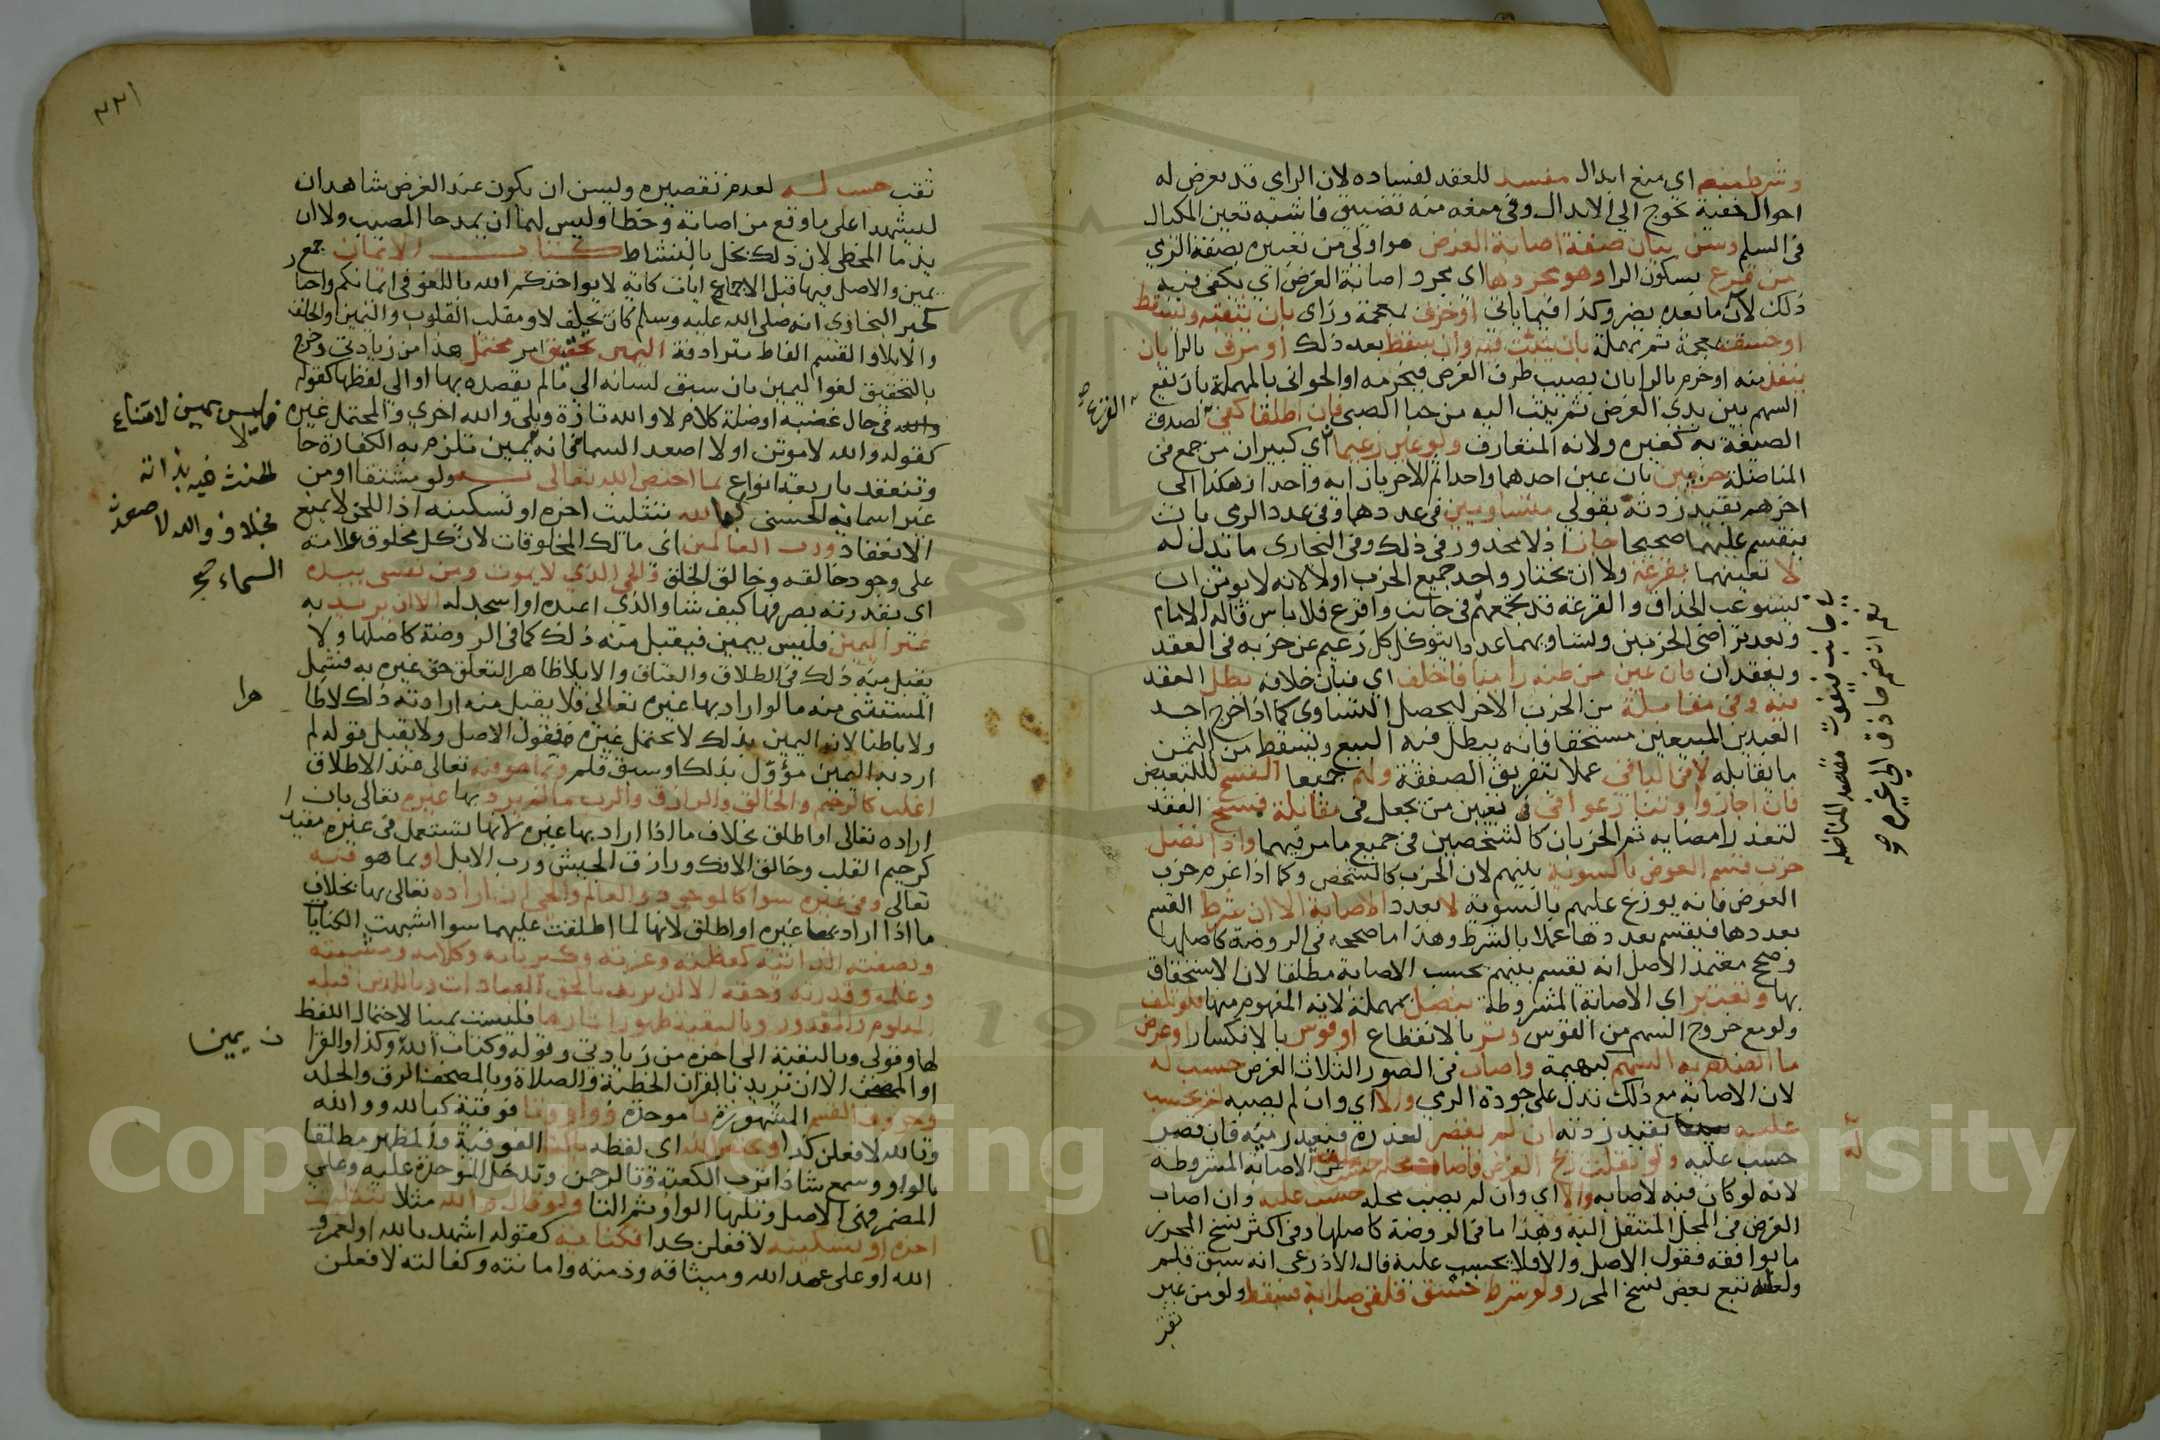 وشرط منعه اي منع ابدال مفسد للعقد لفساده لان الرامي قد يعرض له
احوال خفية تحوج الي الابدال وفي منعه منه تضييق فاشبه تعيين المكيال
في السلم وسن بيان صفة اصابة الغرض هو اولي من تعبيره بصفة الرمي
من قرع بسكون الرا وهو مجردها اي مجرد اصابة الغرض اي يكفي فيه
ذلك لان ما بعده يضر وكذا فيما ياتي او خزق بمعجمة وزاي بان يثقبه ويسقط
او خسق بمعجمة ثم مهملة بان يثبت فيه وان سقط بعد ذلك او مرق بالرا بان
ينفذ منه او خرم بالرا بان يصيب طرف الغرض فيخرمه او الحوابي بالمهملة بان يقع
السهم بين يدي الغرض ثم يثب اليه من حبا الصبي فان اطلقا كفي لصدق
القرع صح
الصيغة به كغيره ولانه المتعارف ولو عين زعيما اي كبيران من جمع في
المناضلة حزبين بان عين احدهما واحدا ثم الاخر بازائه واحدا وهكذا الي
اخرهم بقيد زدته بقولي متساويين في عددهما وفي عدد الرمي بان
ينقسم عليهما صحيحا جاز اذ لا محذور في ذلك وفي البخاري ما يدل له
لا تعيينهما بقرعة ولا ان يختار واحد جميع الحزب اولا لانه لا يومن ان
يستوعب الحذاق والقرعة قد تجمعهم في جانب
وبعد تراضي الحزبين وتساويهما عددا يتوكل كل زعيم عن حزبه في العقد
ويعقدان فان عين من ظنه راميا فاخلف اي فبان خلافه بطل العقد
فيه وفي مقابله من الحزب الاخر ليحصل التساوي كما اذا خرج احد
العبدين المبيعين مستحقا فانه يبطل فيه البيع ويسقط من الثمن
ما يقابله لا في الباقي عملا بتفريق الصفقة ولهم جميعا الفسخ للتبعيض
فان اجازوا وتنازعوا في تعيين من يجعل في مقابلة فسخ العقد
لتعذر امضايه ثم الحزبان كالشخصين في جميع ما مر فيهما واذا نضل
حزب قسم العوض بالسوية بينهم لان الحزب كالشخص وكما اذا غرم حزب
العوض فانه يوزع عليهم بالسوية لا بعدد الاصابة الا ان شرط القسم
بعددها فيقسم بعددها عملا بالشرط وهذا ما صححه في الروضة كاصلها
وصحح الاصل انه يقسم بينهم بحسب الاصابة مطلقا لان الاستحقاق
بها وتعتبر اي الاصابة المشروطة بنصل بمهملة لانه المفهوم منها فلو تلف
ولو مع خروج السهم من القوس وتر بالانقطاع او قوس بالانكسار او عرض
ما انصدم به السهم كبهيمة واصاب في الصور الثلاث الغرض حسب له
لان الاصابة مع ذلك تدل علي جودة الرمي والا اي وان لم يصبه لم يحسب
عليه بقيد زدته ان لم يقصر لعذره فيعيد رميه فان قصر
حسب عليه ولو نقلت ريح الغرض فاصاب محله حسب له عن الاصابة المشروطة
لانه لو كان فيه لاصابه والا اي وان لم يصب محله حسب عليه وان اصاب
الغرض في المحل المنتقل اليه وهذا ما في الروضة كاصلها وفي اكثر نسخ المحرر
ما يوافقه فقول الاصل والا فلا يحسب عليه قال الاذرعي انه سبق قلم
ولعله تبع بعض نسخ المحرر ولو شرط خسق فلقي صلابة فسقط ولو من غير
ثقب
له
٢٢١
ثقب حسب له لعدم تقصيره ويسن ان يكون عند الغرض شاهدان
ليشهدا علي ما وقع من اصابة وخطا وليس لهما ان يمدحا المصيب ولا ان
يذما المخطي لان ذلك يخل بالنشاط كتاب الايمان جمع
يمين والاصل فيها قبل الاجماع ايات كاية لا يواخذكم الله باللغو في ايمانكم واخبار
كخبر البخاري انه صلي الله عليه وسلم كان يحلف لا ومقلب القلوب واليمين والحلف
والايلا والقسم الفاظ مترادفة اليمين تحقيق امر محتمل هذا من زيادتي وخرج
بالتحقيق لغو اليمين بان سبق لسانه الي ما لم يقصده بها او الي لفظها كقوله
في حال غضبه او صلة كلام لا والله تارة وبلي والله اخري وبالمحتمل غيره
كقوله والله لاموتن او لا اصعد السما فانه يمين تلزم به الكفارة حالا
فليس بيمين لامتناع
الحنث فيه بذاته
بخلاف والله لاصعدن
السماء صح
وتنعقد باربعة انواع بما اختص الله تعالي به ولو مشتقا او من
غير اسمائه الحسني كالله بتثليث اخره او تسكينه اذ اللحن لا يمنع
الانعقاد ورب العالمين اي مالك المخلوقات لان كل مخلوق علامة
علي وجود خالقه وخالق الخلق والحي الذي لا يموت ومن نفسي بيده
اي بقدرته يصرفها كيف شا والذي اعبده او اسجد له الا ان يريد به
غير اليمين فليس بيمين فيقبل منه ذلك كما في الروضة كاصلها ولا
يقبل منه ذلك في الطلاق والعتاق والايلا ظاهرا لتعلق حق غيره به فشمل
المستثني منه ما لو اراد بها غيره تعالي فلا يقبل منه ارادته ذلك لا ظاهرا
ولا باطنا لان اليمين بذلك لا تحتمل غيره فقول الاصل ولا يقبل قوله لم
ارد به اليمين مؤول بذلك او سبق قلم وبما هو فيه تعالي عند الاطلاق
اغلب كالرحيم والخالق والرازق والرب ما لم يرد بها غيره تعالي بان
اراده تعالي او اطلق بخلاف ما اذا اراد بها غيره لانها تستعمل في غيره مقيدا
كرحيم القلب وخالق الافك ورازق الجيش ورب الابل او بما هو فيه
تعالي وفي غيره سوا كالموجود والعالم والحي ان اراده تعالي بها بخلاف
ما اذا اراد بها غيره او اطلق لانها لما اطلقت عليهما سوا اشبهت الكنايات
وبصفته الذاتية كعظمته وعزته وكبريائه وكلامه ومشيئته
وعلمه وقدرته وحقه الا ان يريد بالحق العبادات وباللذين قبله
المعلوم والمقدور وبالبقية ظهور اثارها فليست يمينا لاحتمال اللفظ
لها وقولي وبالبقية الي اخره من زيادتي وقوله وكتاب الله وكذا والقران
او المصحف الا ان يريد بالقران الخطبة والصلاة وبالمصحف الورق والجلد
وحروف القسم المشهورة با موحدة وواو وتا فوقية كبالله ووالله
وتالله لافعلن كذا ويختص الله اي لفظه بالتا الفوقية والمظهر مطلقا
بالواو وسمع شاذا ترب الكعبة وتالرحمن وتدخل الموحدة عليه وعلي
المضمر فهي الاصل وتليها الواو ثم التا ولو قال والله مثلا بتثليث
اخره او تسكينه لافعلن كذا فكناية كقوله اشهد بالله او لعمرو
الله او علي عهد الله وميثاقه وذمته وامانته وكفالته لافعلن